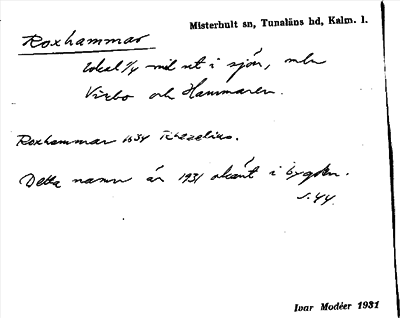 Misterhult sn, Tunaläns hd, Kalm. l.
Roxhammar
lokal 1/4 mil ut i sjön, mln
Virbo och Hammaren.
Roxhammar 1634
Detta namn är 1931 okänt i bygden.
s. 44.
Ivar Modéer 1931